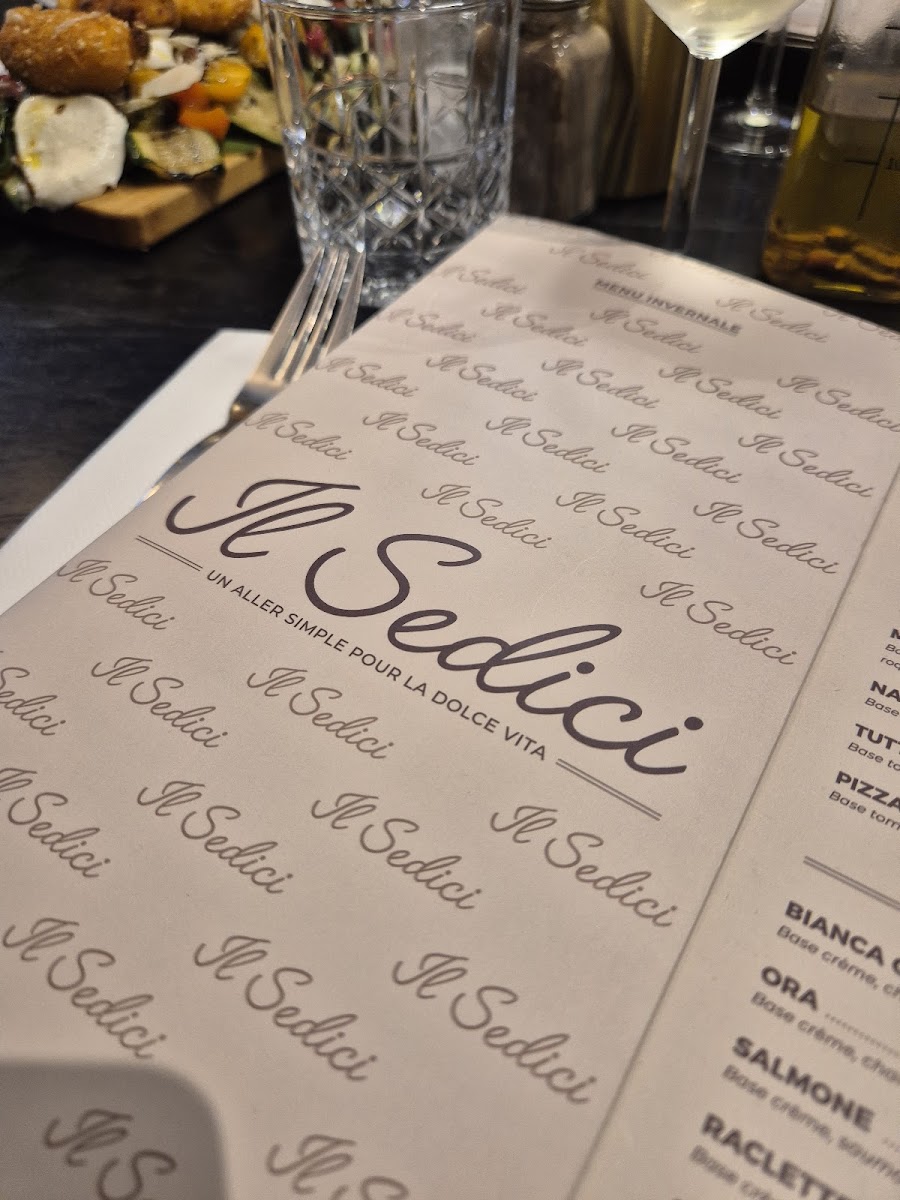 MENU INVERNALE
Il Sedici
UN ALLER SIMPLE POUR LA DOLCE VITA
Il Sedici Il Sedici
Il Sedici Il Sedici Il Sedici
Il Sedici Il Sedici Il Sedici Il Sedici Il Sedici
Il Sedici Il Sedici Il Sedici Il Sedici Il Sedici
Il Sedici Il Sedici Il Sedici
Il Sedici
Il Sedici
Sedici Il Sedici Il Sedici
Il Sedici Il Sedici Il Sedici Il Sedici
Il Sedici Il Sedici Il Sedici
Il Il
Base
Base
PIZZA
Base
BIANCA
Base crème,
ORA
Base crème,
SALMONE
Base crème,
Base